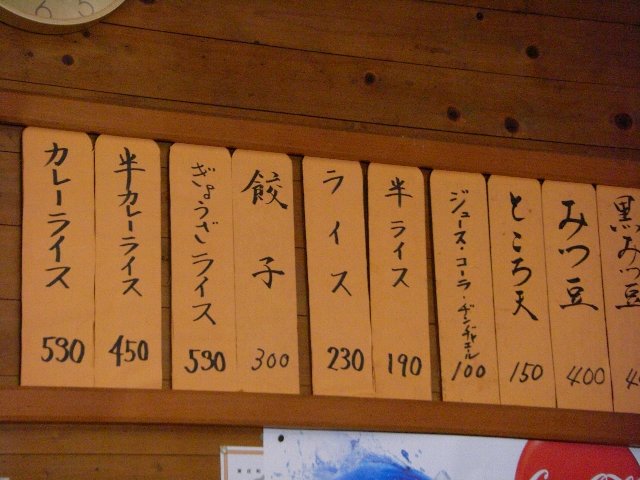 カレーライス
530
半カレーライス
450
ぎょうざライス
530
餃子
300
ライス
230
半ライス
190
ジュース・コーラ・ジンジャエール
100
ところ天
150
みつ豆
400
黒みつ豆